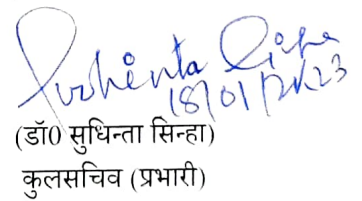 Sudhinta Sinha
18/01/2023
(डॉ0 सुधिन्ता सिन्हा)
कुलसचिव (प्रभारी)